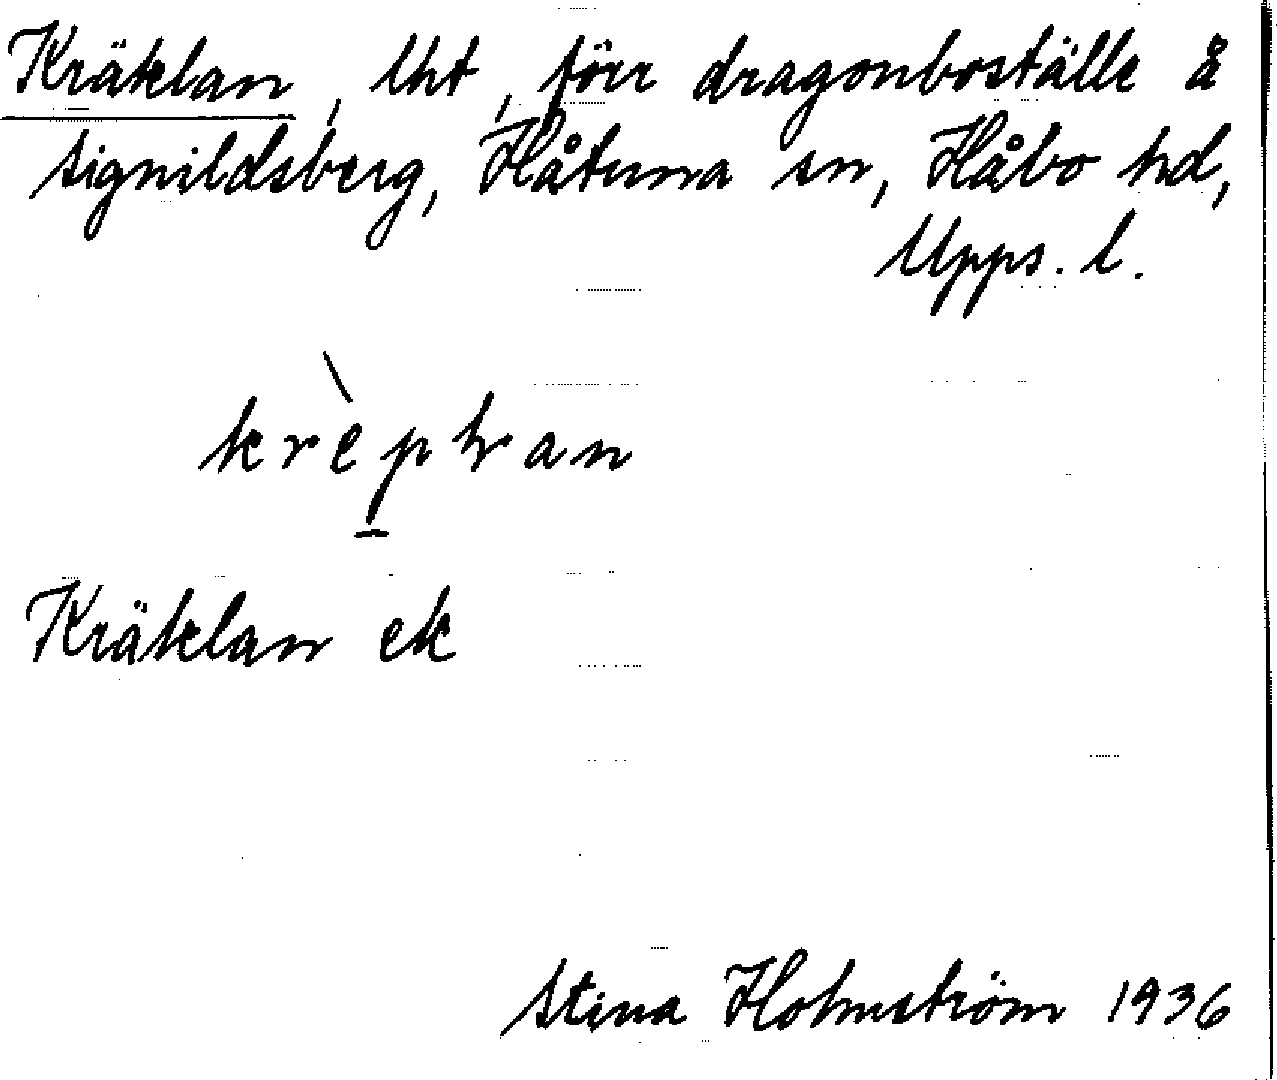 Kräklan, lht, förr dragonboställe å
Signildsberg, Håtuna sn, Håbo hd,
Upps. l.
Kräklan ek
Stina Holmström 1936